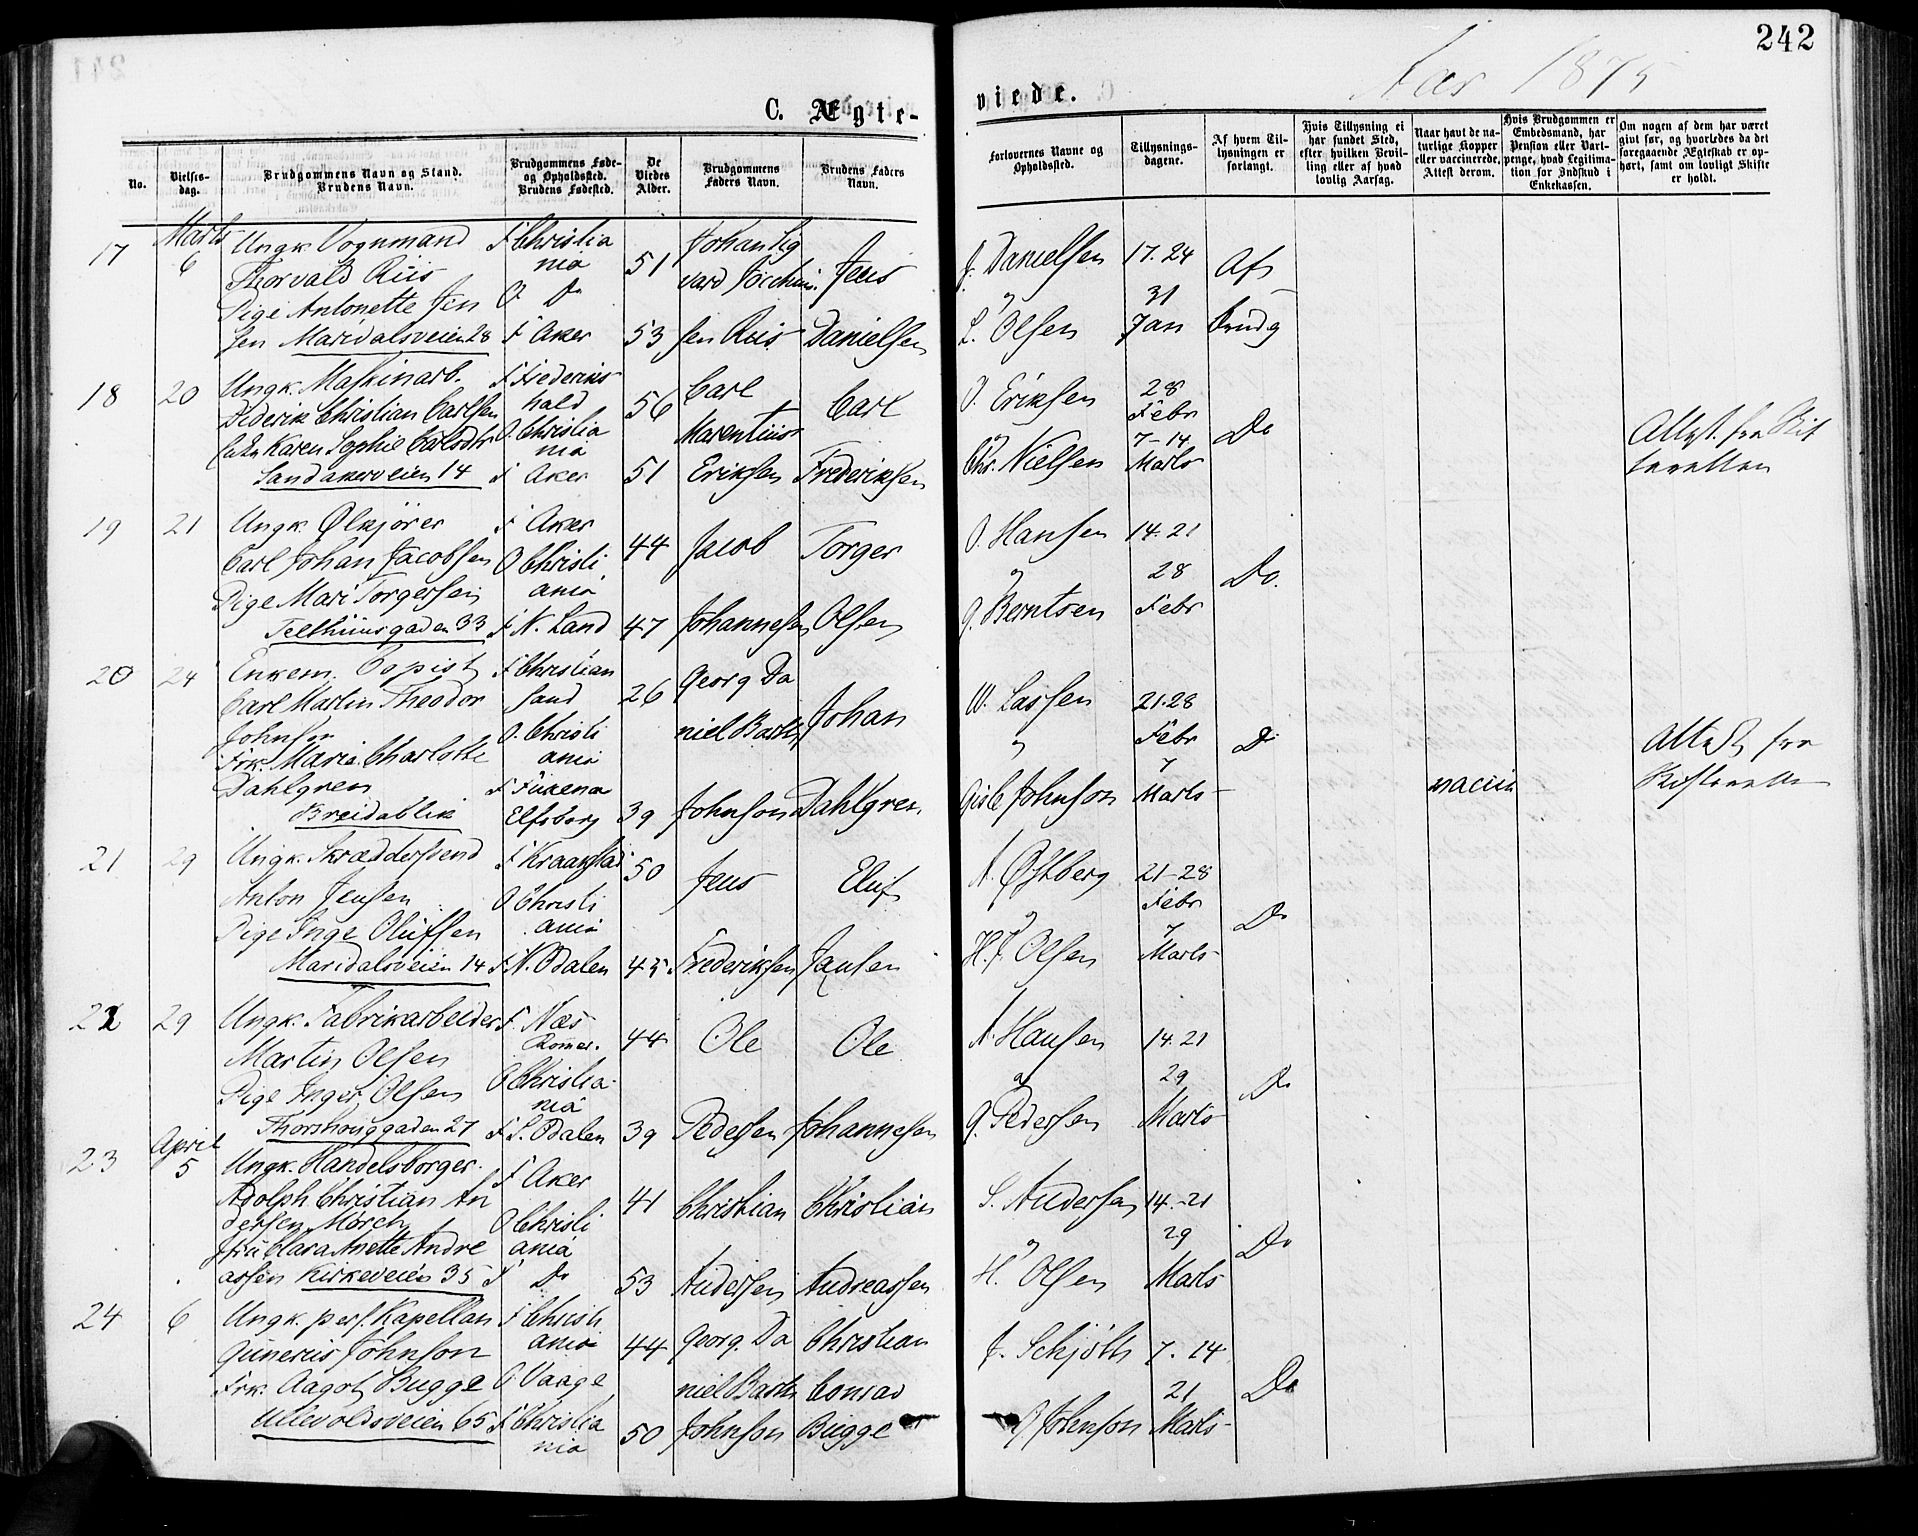 242
Aar 1875
C. Ægte-
viede.
No.
Vielses-
dag.
Brudgommens Navn og Stand.
Brudens Navn.
Brudgommens Føde-
og Opholdssted.
Brudens Fødested.
De
Viedes
Alder.
Brudgommens
Faders Navn.
Brudens Faders
Navn.
Forlovernes Navne og
Opholdssted.
Tillysnings-
dagene.
Af hvem Til-
lysningen er
forlangt.
Hvis Tillysning ei
har fundet Sted,
efter hvilken Bevil-
ling eller af hvad
lovlig Aarsag.
Naar havt de na-
turlige Kopper
eller vaccinerede.
Attest derom.
Hvis Brudgommen er
Embedsmand, har
Pension eller Vart-
penge, hvad Legitima-
tion for Indskud i
Enkekassen.
Om nogen af dem har været
givt før, og hvorledes da det
foregaaende Ægteskab er op-
hørt, samt om lovligt Skifte
er holdt.
17
Marts
6
Ungk. Vognmand
Thorvald Riis
Pige Antonette Jen
sen Maridalsveien 28
F Christia
nia
O. Do
F Aker
51
53
Johan Sig
vard Jocchum
sen Riis
Jens
Danielsen
J. Danielsen
L. Olsen
17. 24
31
Jan
Af
Brudg
18
20
Ungk. Maskinarb.
Diderik Christian Carlsen
Karen Sophie Carlsdtr
Sandakerveien 14
F Frederiks
hald
O. Christia
nia
F Aker
56
51
Carl
Marentius
Eriksen
Carl
Frederiksen
O. Eriksen
Chr. Nielsen
28
Febr
7-14
Marts
Do
Attest. fra Skif
teretten
19
21
Ungk. Ølkjører
Carl Johan Jacobsen
Pige Mari Torgersen
Telthuusgaden 33
F Aker
O Christi
ania
F N. Land
44
47
Jacob
Johannesen
Torger
Olsen
O. Hansen
G. Berntsen
14. 21
28
Febr
Do.
20
24
Enkem. Copist
Carl Martin Theodor
Johnson
Frk. Maria Charlotte
Dahlgren
Breidablik
F Christian
sand
O. Christi
ania
F Fuxerna
Elfsborg
26
39
Georg Da
niel Barth
Johnson
Johan
Dahlgren
W. Lassen
Gisle Johnson
21-28
Febr
7
Marts
Do
vaccin
Attest fra
Skifteretten
21
29
Ungk. Skræddersvend
Anton Jensen
Pige Inge Oluffsen
Maridalsveien 14
F Kraakstad
O Christi
ania
F N. Odalen
50
43
Jens
Frederiksen
Eluf
Jansen
A. Østberg
H. J. Olsen
21-28
Febr
7
Marts
Do
22
29
Ungk. Fabrikarbeider
Martin Olsen
Pige Inger Olsen
Thorshouggaden 27
F. Næs
Romer.
O Christia
nia
F S. Odalen
44
39
Ole
Pedersen
Ole
Johannesen
A. Hansen
G. Pedersen
14. 21
29
Marts
Do
23
April
5
Ungk. Handelsborger
Adolph Christian An
dersen Mørch
Jfru Clara Anette Andre
assen Kirkeveien 35
F Aker
O Christi
ania
F Do
41
53
Christian
Andersen
Christian
Andreassen
S. Andersen
H. Olsen
14.-21
29
Marts
Do
24
6
Ungk. pers. Kapellan
Gunerius Johnson
Frk. Aagot Bugge
Ullevoldsveien 65
F Christi
ania
O Vaage
F Christia
nia
44
50
Georg. Da
niel Barth
Johnson
Christian
Conrad
Bugge
J. Schjøth
G Johnson
7. 14
21
Marts
Do